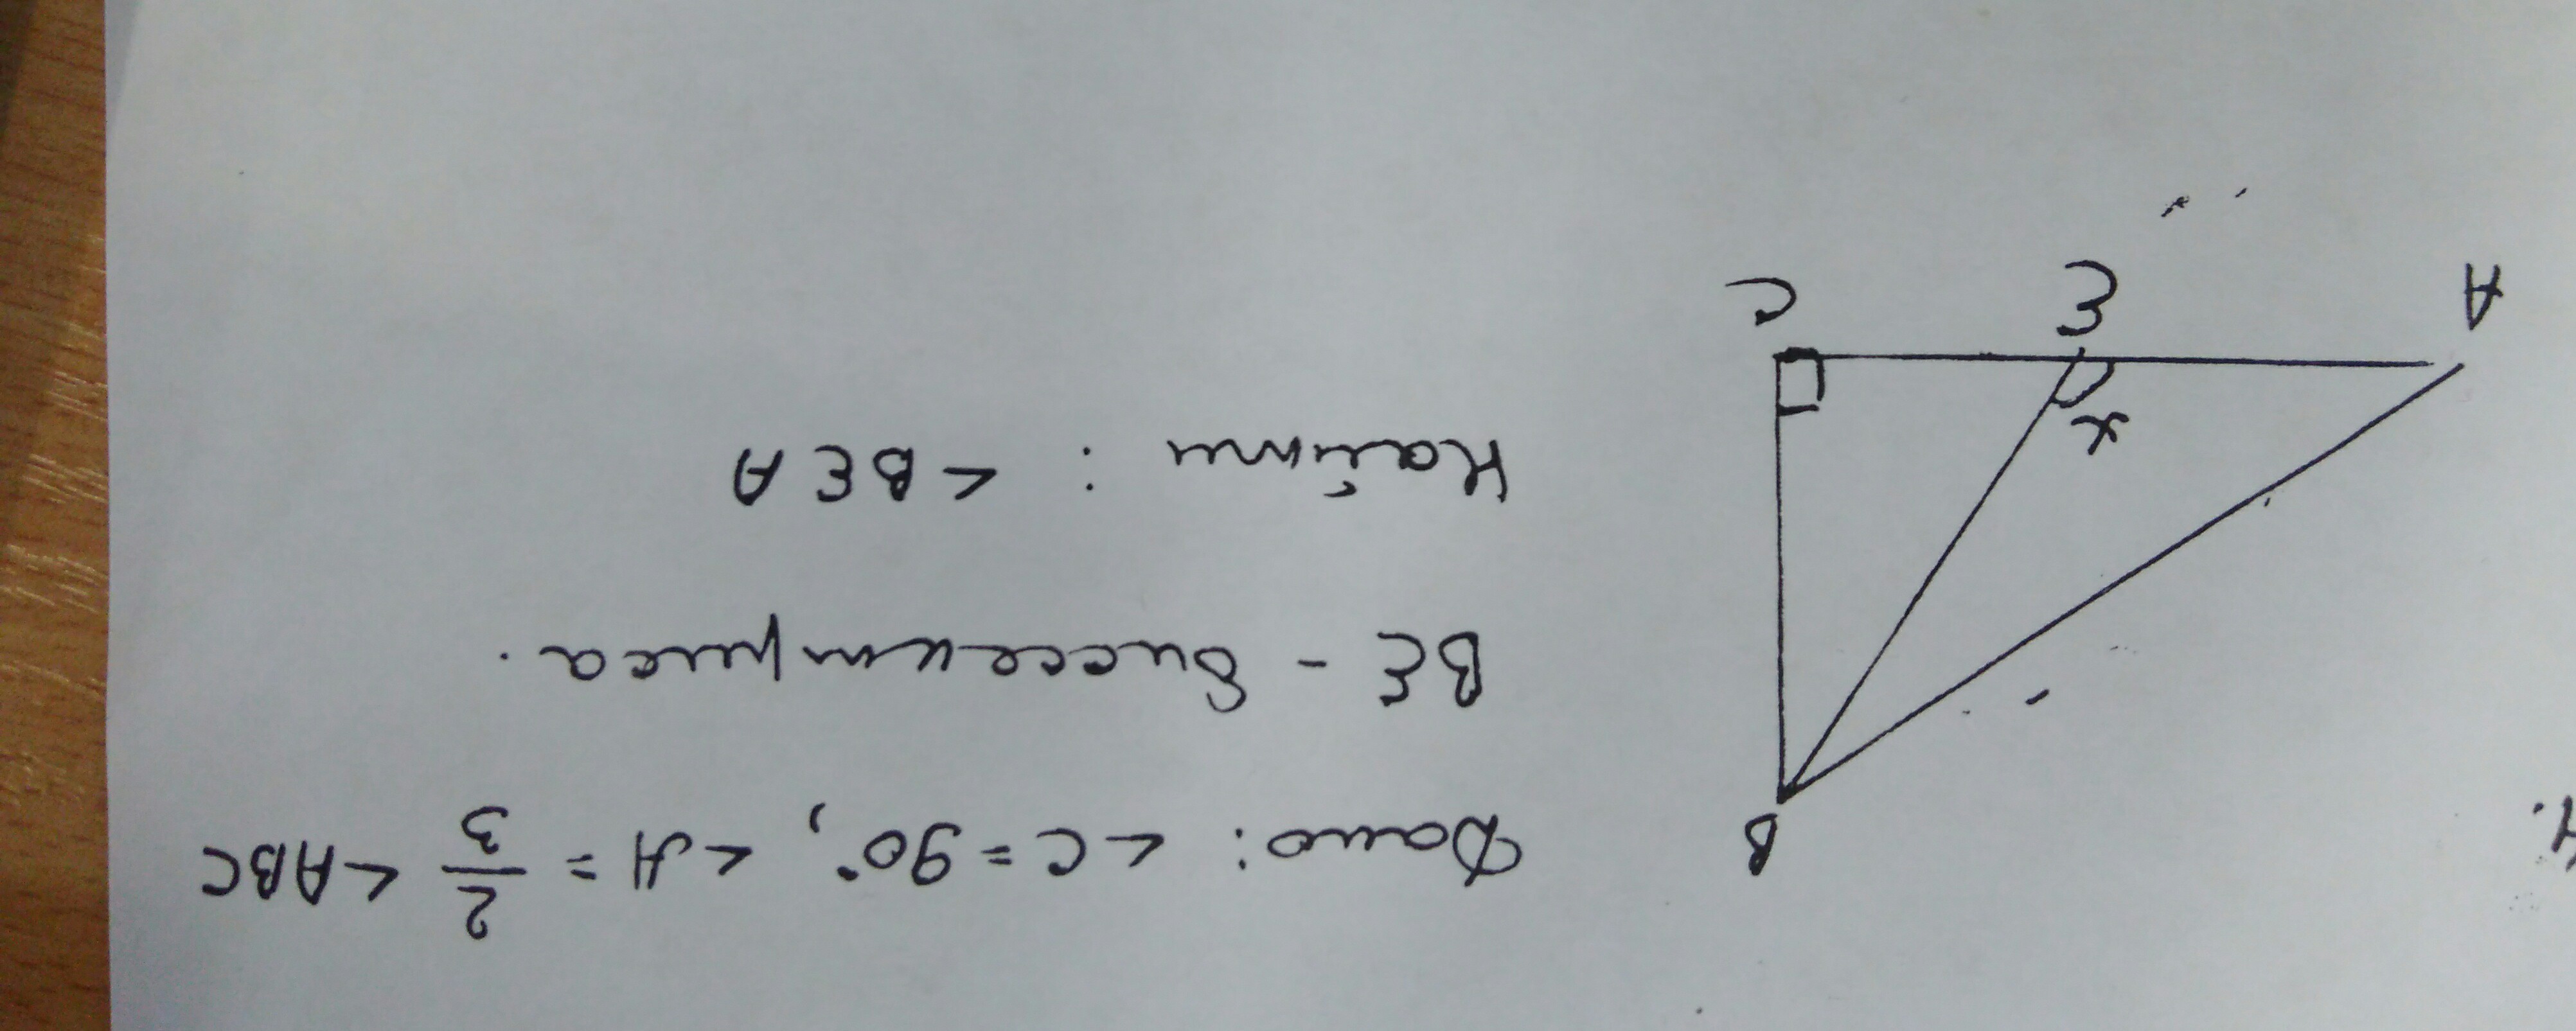 4.
B
A
E
C
x
Дано: <C = 90°, <A = 2/3 <ABC
BE - биссектриса.
Найти: <BEA